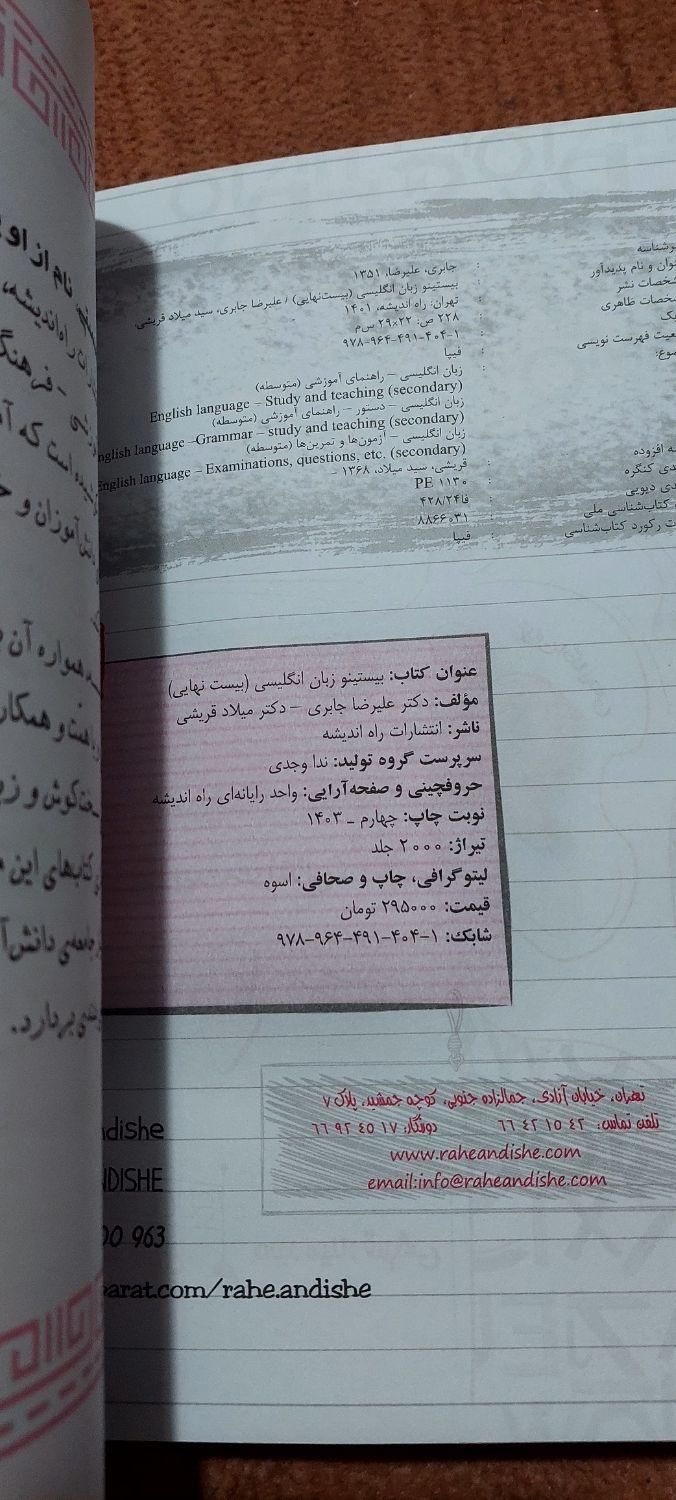 سرشناسه : جابری، علیرضا، ۱۳۵۱
عنوان و نام پدیدآور : بیستینو زبان انگلیسی (بیست‌نهایی) / علیرضا جابری، سید میلاد قریشی.
مشخصات نشر : تهران: راه اندیشه، ۱۴۰۱
مشخصات ظاهری : ۲۲۸ ص: ۲۲×۲۹ س‌م
۹۷۸-۹۶۴-۴۹۱-۴۰۴-۱
وضعیت فهرست نویسی : فیپا
زبان انگلیسی – راهنمای آموزشی (متوسطه)
English language – Study and teaching (secondary)
زبان انگلیسی – دستور – راهنمای آموزشی (متوسطه)
English language –Grammar – study and teaching (secondary)
زبان انگلیسی – آزمون‌ها و تمرین‌ها (متوسطه)
English language – Examinations, questions, etc. (secondary)
افزوده : قریشی، سید میلاد، ۱۳۶۸ –
کنگره : PE ۱۱۳۰
دیویی : ۴۲۸/۲۴فا
کتاب‌شناسی ملی : ۸۸۶۶۰۳۱
رکورد کتاب‌شناسی : فیپا
عنوان کتاب: بیستینو زبان انگلیسی (بیست نهایی)
مؤلف: دکتر علیرضا جابری – دکتر میلاد قریشی
ناشر: انتشارات راه اندیشه
سرپرست گروه تولید: ندا وجدی
حروفچینی و صفحه‌آرایی: واحد رایانه‌ای راه اندیشه
نوبت چاپ: چهارم – ۱۴۰۳
تیراژ: ۲۰۰۰ جلد
لیتوگرافی، چاپ و صحافی: اسوه
قیمت: ۲۹۵۰۰۰ تومان
شابک: ۹۷۸-۹۶۴-۴۹۱-۴۰۴-۱
تهران، خیابان آزادی، جمالزاده جنوبی، کوچه جمشید، پلاک ۷
تلفن تماس: ۴۲ ۱۵ ۴۲ ۶۶ دورنگار: ۱۷ ۴۵ ۹۲ ۶۶
www.raheandishe.com
email:info@raheandishe.com
ndishe
NDISHE
00 963
parat.com/rahe.andishe
نام از او
راه‌اندیشه،
است که
دانش‌آموزان و
همواره آن
همت و همکار
سخت‌کوش و
کتابهای این
جامعه‌ی دانش‌آ
بردارد.